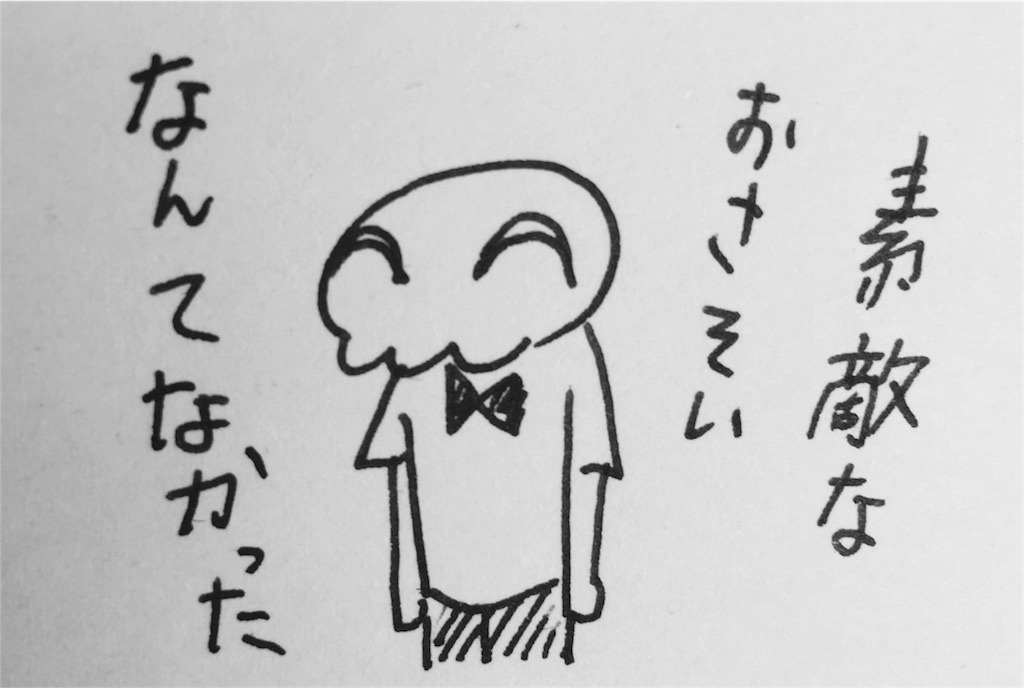 素敵な
おさそい
なんてなかった